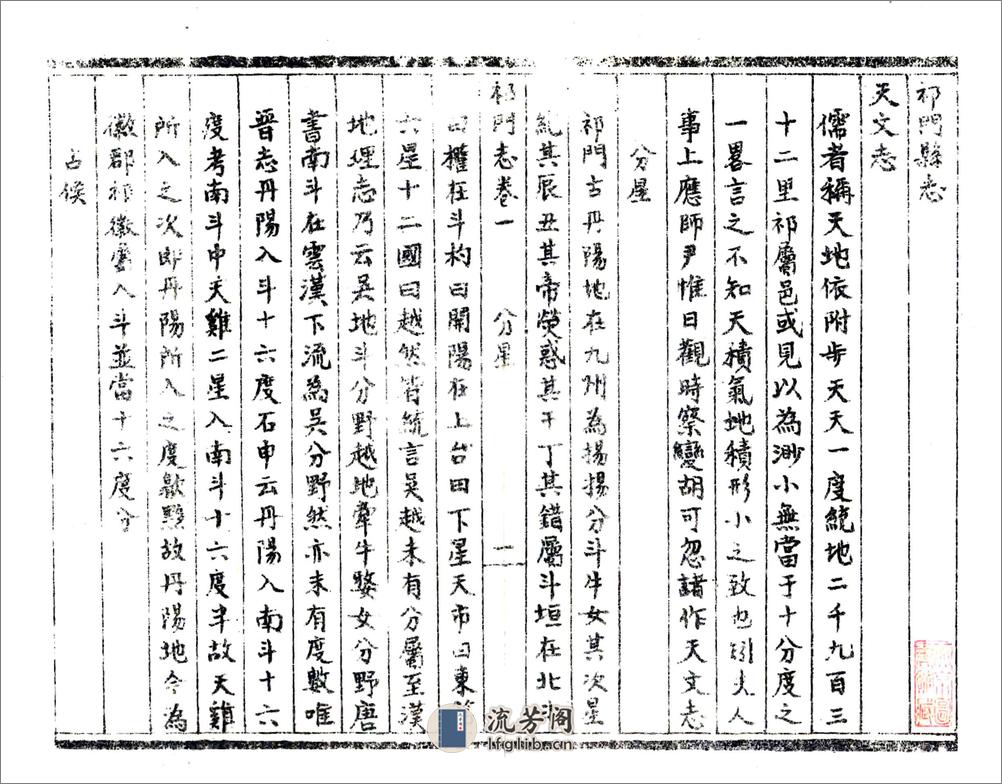 祁門縣志
天文志
儒者稱天地依附步天天一度繞地二千九百三
十二里祁屬邑或見以為渺小無當于十分度之
一畧言之不知天積氣地積形小之致也矧夫人
事上應師尹惟日觀時察變胡可忽諸作天文志
分星
祁門古丹陽地在九州為揚揚分斗牛女其次星
紀其辰丑其帝熒惑其干丁其錯屬斗垣在北
祁門志卷一 分星 一
曰權在斗杓曰開陽在上台曰下星天市曰東
六星十二國曰越然皆統言吳越未有分屬至漢
地理志乃云吳地斗分野越地牽牛婺女分野唐
書南斗在雲漢下流為吳分野然亦未有度數唯
晉志丹陽入斗十六度石申云丹陽入南斗十六
度考南斗中天雞二星入南斗十六度半故天雞
所入之次即丹陽所入之度歙黟故丹陽地今為
徽郡祁徽屬入斗並當十六度分
占候
流芳閣
lfglib.cn